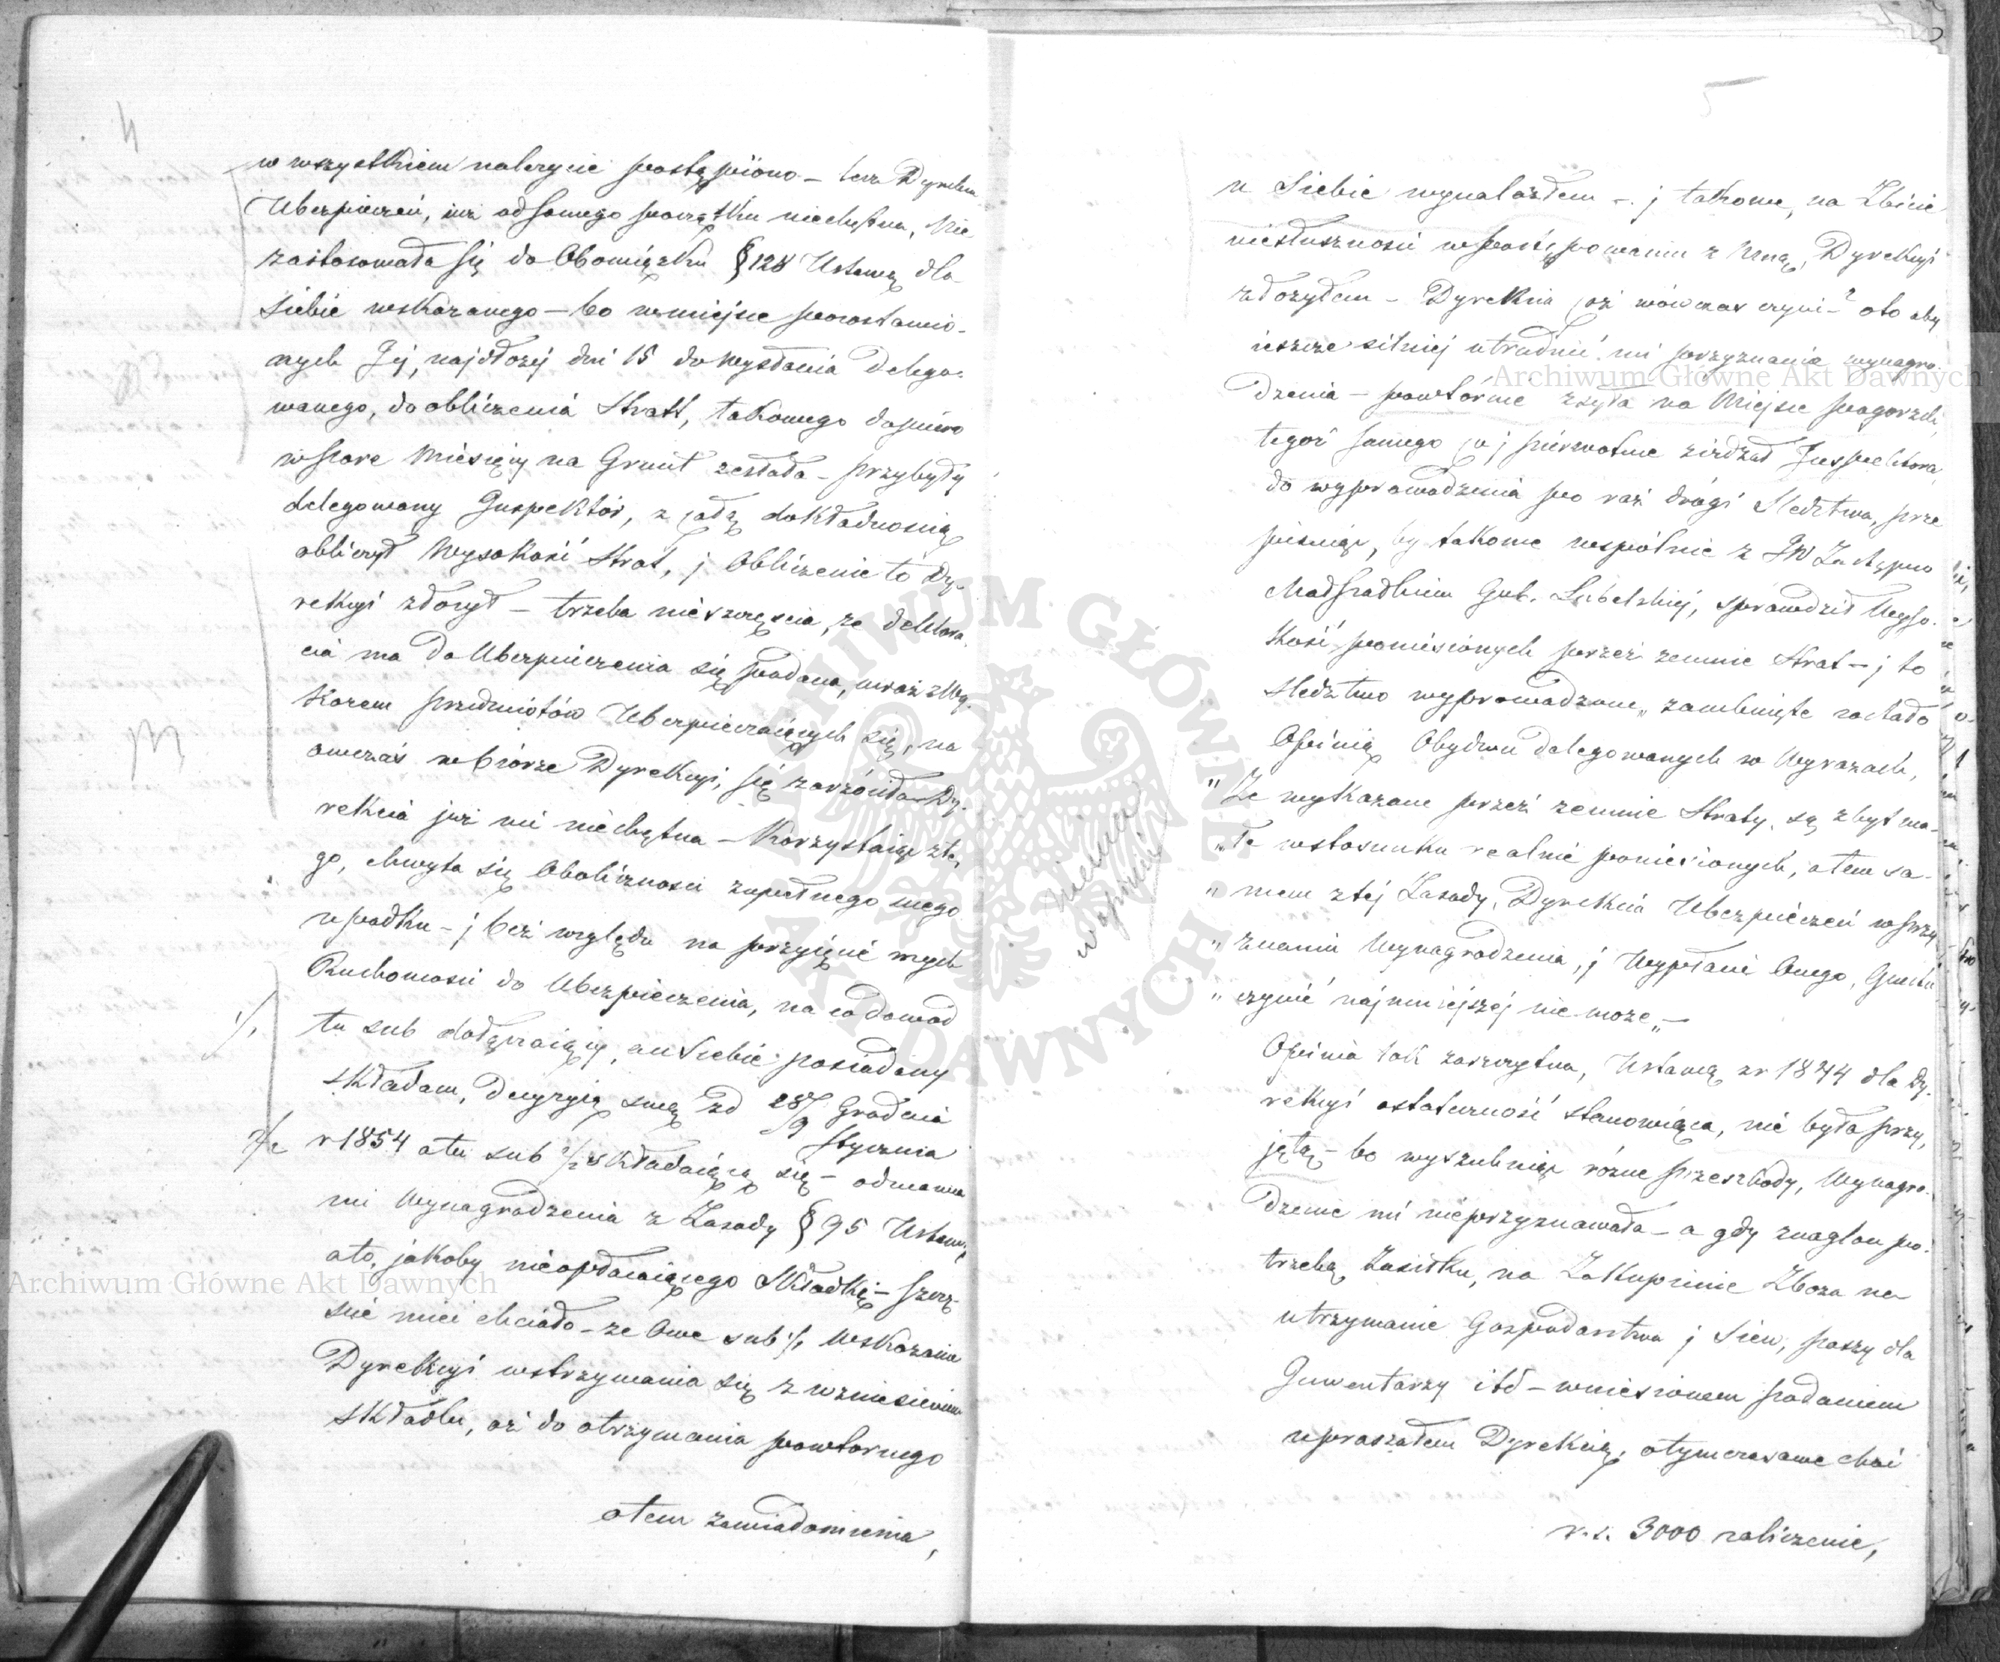 4
w wszystkiem należycie postąpiono – lecz Dyrekcia
Ubezpieczeń, już od samego początku niechętna, Nie
zastosowała się do Obowiązku § 128 Ustawą dla
siebie wskazanego – bo w miejsce pozostawio-
nych Jej, najdłożej dni 15 do wysłania Delego-
wanego, do obliczenia Stratt, takowego dopiero
w pare Miesięcy na Grunt zesłała – przybyły
delegowany Inspektór, z całą dokładnością
obliczył Wysokość Strat, j Obliczenie to Dy-
rekcyi złożył – trzeba nieszczęścia, że deklara-
cia ma do Ubezpieczenia się podana, wraz z Wy-
kazem przedmiotów Ubezpieczaiących się, na
owczas w biórze Dyrekcyi, się zarzóciła – Dy-
rekcia już mi niechętna – Korzystaiąc z te-
go, chwyta się Okoliczności zupełnego mego
upadku – j bez względu na przyięcie mych
Ruchomości do Ubezpieczenia, na co dowód
1/. tu sub dołączaiący, a u Siebie posiadany
składam, Decyzyią swą z d 28/9 Grudnia Stycznia
2/. r 1854 a tu sub 2/. składaiącą się – odmawia
mi Wynagrodzenia z Zasady § 95 Ustawy
a to, jakoby nieopłacaiącego Składkę – Szczę-
ście mieć chciało – że Owe sub 1/. Wskazanie
Dyrekcyi wstrzymania się z wniesieniem
składki, aż do otrzymania powtornego
o tem zawiadomienia,
5
u Siebie wynalazłem – j takowe, na Zbicie
niesłuszności w postępowaniu z Mną, Dyrekcyi
złożyłem – Dyrekcia coż wówczas czyni? oto aby
ieszcze silniej utrudnić mi przyznanie wynagro-
dzenia – powtórnie zsyła na Miejsce pogorzeli,
tegoż samego co j pierwotnie ziedżał Inspektora,
do wyprowadzenia po raź drógi Sledztwa, prze
pisuiąc, by takowe wspólnie z JW Zastępcą
Naczelnika Gub. Lubelskiej, sprawdził Wyso-
kość poniesionych przeze mnie Strat – j to
sledztwo wyprowadzone, zamknięte zostało
Opinią Obydwu delegowanych w Wyrazach,
„Że wykazane przeź zemnie Straty, są zbyt ma-
„łe w stosunku realnie poniesionych, a tem sa-
„mem z tej Zasady, Dyrekcia Ubezpieczeń w przy
„znaniu Wynagrodzenia, j Wypłacie Onego,
„czynić najmniejszej nie może„ –
Opinia tak zaszczytna, Ustawą z r 1844 dla Dy-
rekcyi ostateczność stanowiąca, nie była przy,
jętą – bo wyszukuiąc różne przeszkody, Wynagro-
dzenie mi nieprzyznawała – a gdy znaglon po-
trzebą Zasiłku, na Zakupienie Zboża na
utrzymanie Gospodarstwa j Siew, paszy dla
Inwentarzy itd – wniesionem podaniem
upraszałem Dyrekcią, o tymczasowe choć
r.s. 3000 zaliczenie,
Archiwum Główne Akt Dawnych
Archiwum Główne Akt Dawnych
ARCHIWUM GŁÓWNE AKT DAWNYCH